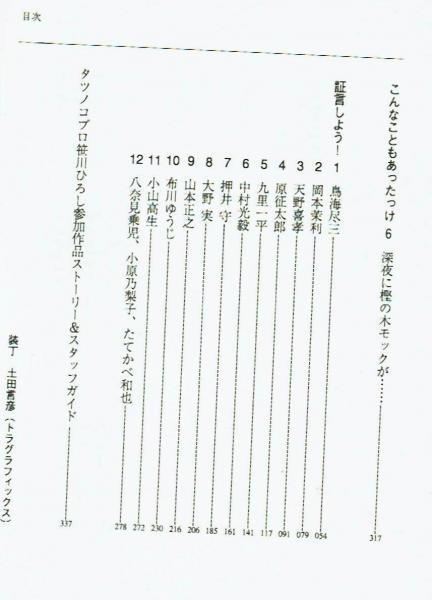 目次
こんなこともあったっけ 6 深夜に樫の木モックが…… 317
証言しよう！
1 鳥海尽三 054
2 岡本茉利 079
3 天野喜孝 091
4 原征太郎 117
5 九里一平 141
6 中村光毅 161
7 押井 守 185
8 大野 実 206
9 山本正之 216
10 布川ゆうじ 230
11 小山高生 272
12 八奈見乗児、小原乃梨子、たてかべ和也 278
タツノコプロ笹川ひろし参加作品ストーリー＆スタッフガイド 337
装丁 土田言彦（トラグラフィックス）